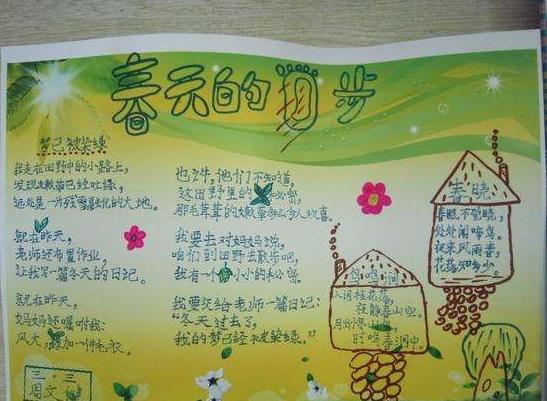 春天的脚步
梦已被染绿
我走在田野中的小路上，
发现嫩苗已经吐绿，
远处是一片残雪融化的大地。
就在昨天，
老师还布置作业，
让我写一篇冬天的日记。
就在昨天，
妈妈还嘱咐我：
风大，添加一件毛衣。
三·三
周文
也许，他们不知道，
这田野里的秘密，
那毛茸茸的嫩草多么令人欢喜。
我要去对妈妈说，
咱们到田野去散步吧，
我有一个小小的秘密。
我要交给老师一篇日记：
“冬天过去了，
我的梦已经被染绿。”
鸟鸣涧
人闲桂花落，
夜静春山空。
月出惊山鸟，
时鸣春涧中
春晓
春眠不觉晓，
处处闻啼鸟。
夜来风雨声，
花落知多少。